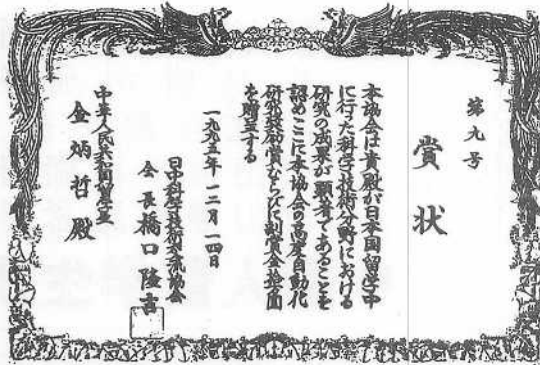 第九号
賞状
本協会は貴殿が日本国留学中
に行った科学技術分野における
研究の成果が顕著であることを
認めここに本協会の高度自動化
研究奨励賞ならびに副賞金拾圓
を贈呈する
一九九五年一二月一四日
日中科学技術交流協会
会長 橋口隆吉
中華人民共和国留学生
金炳哲殿